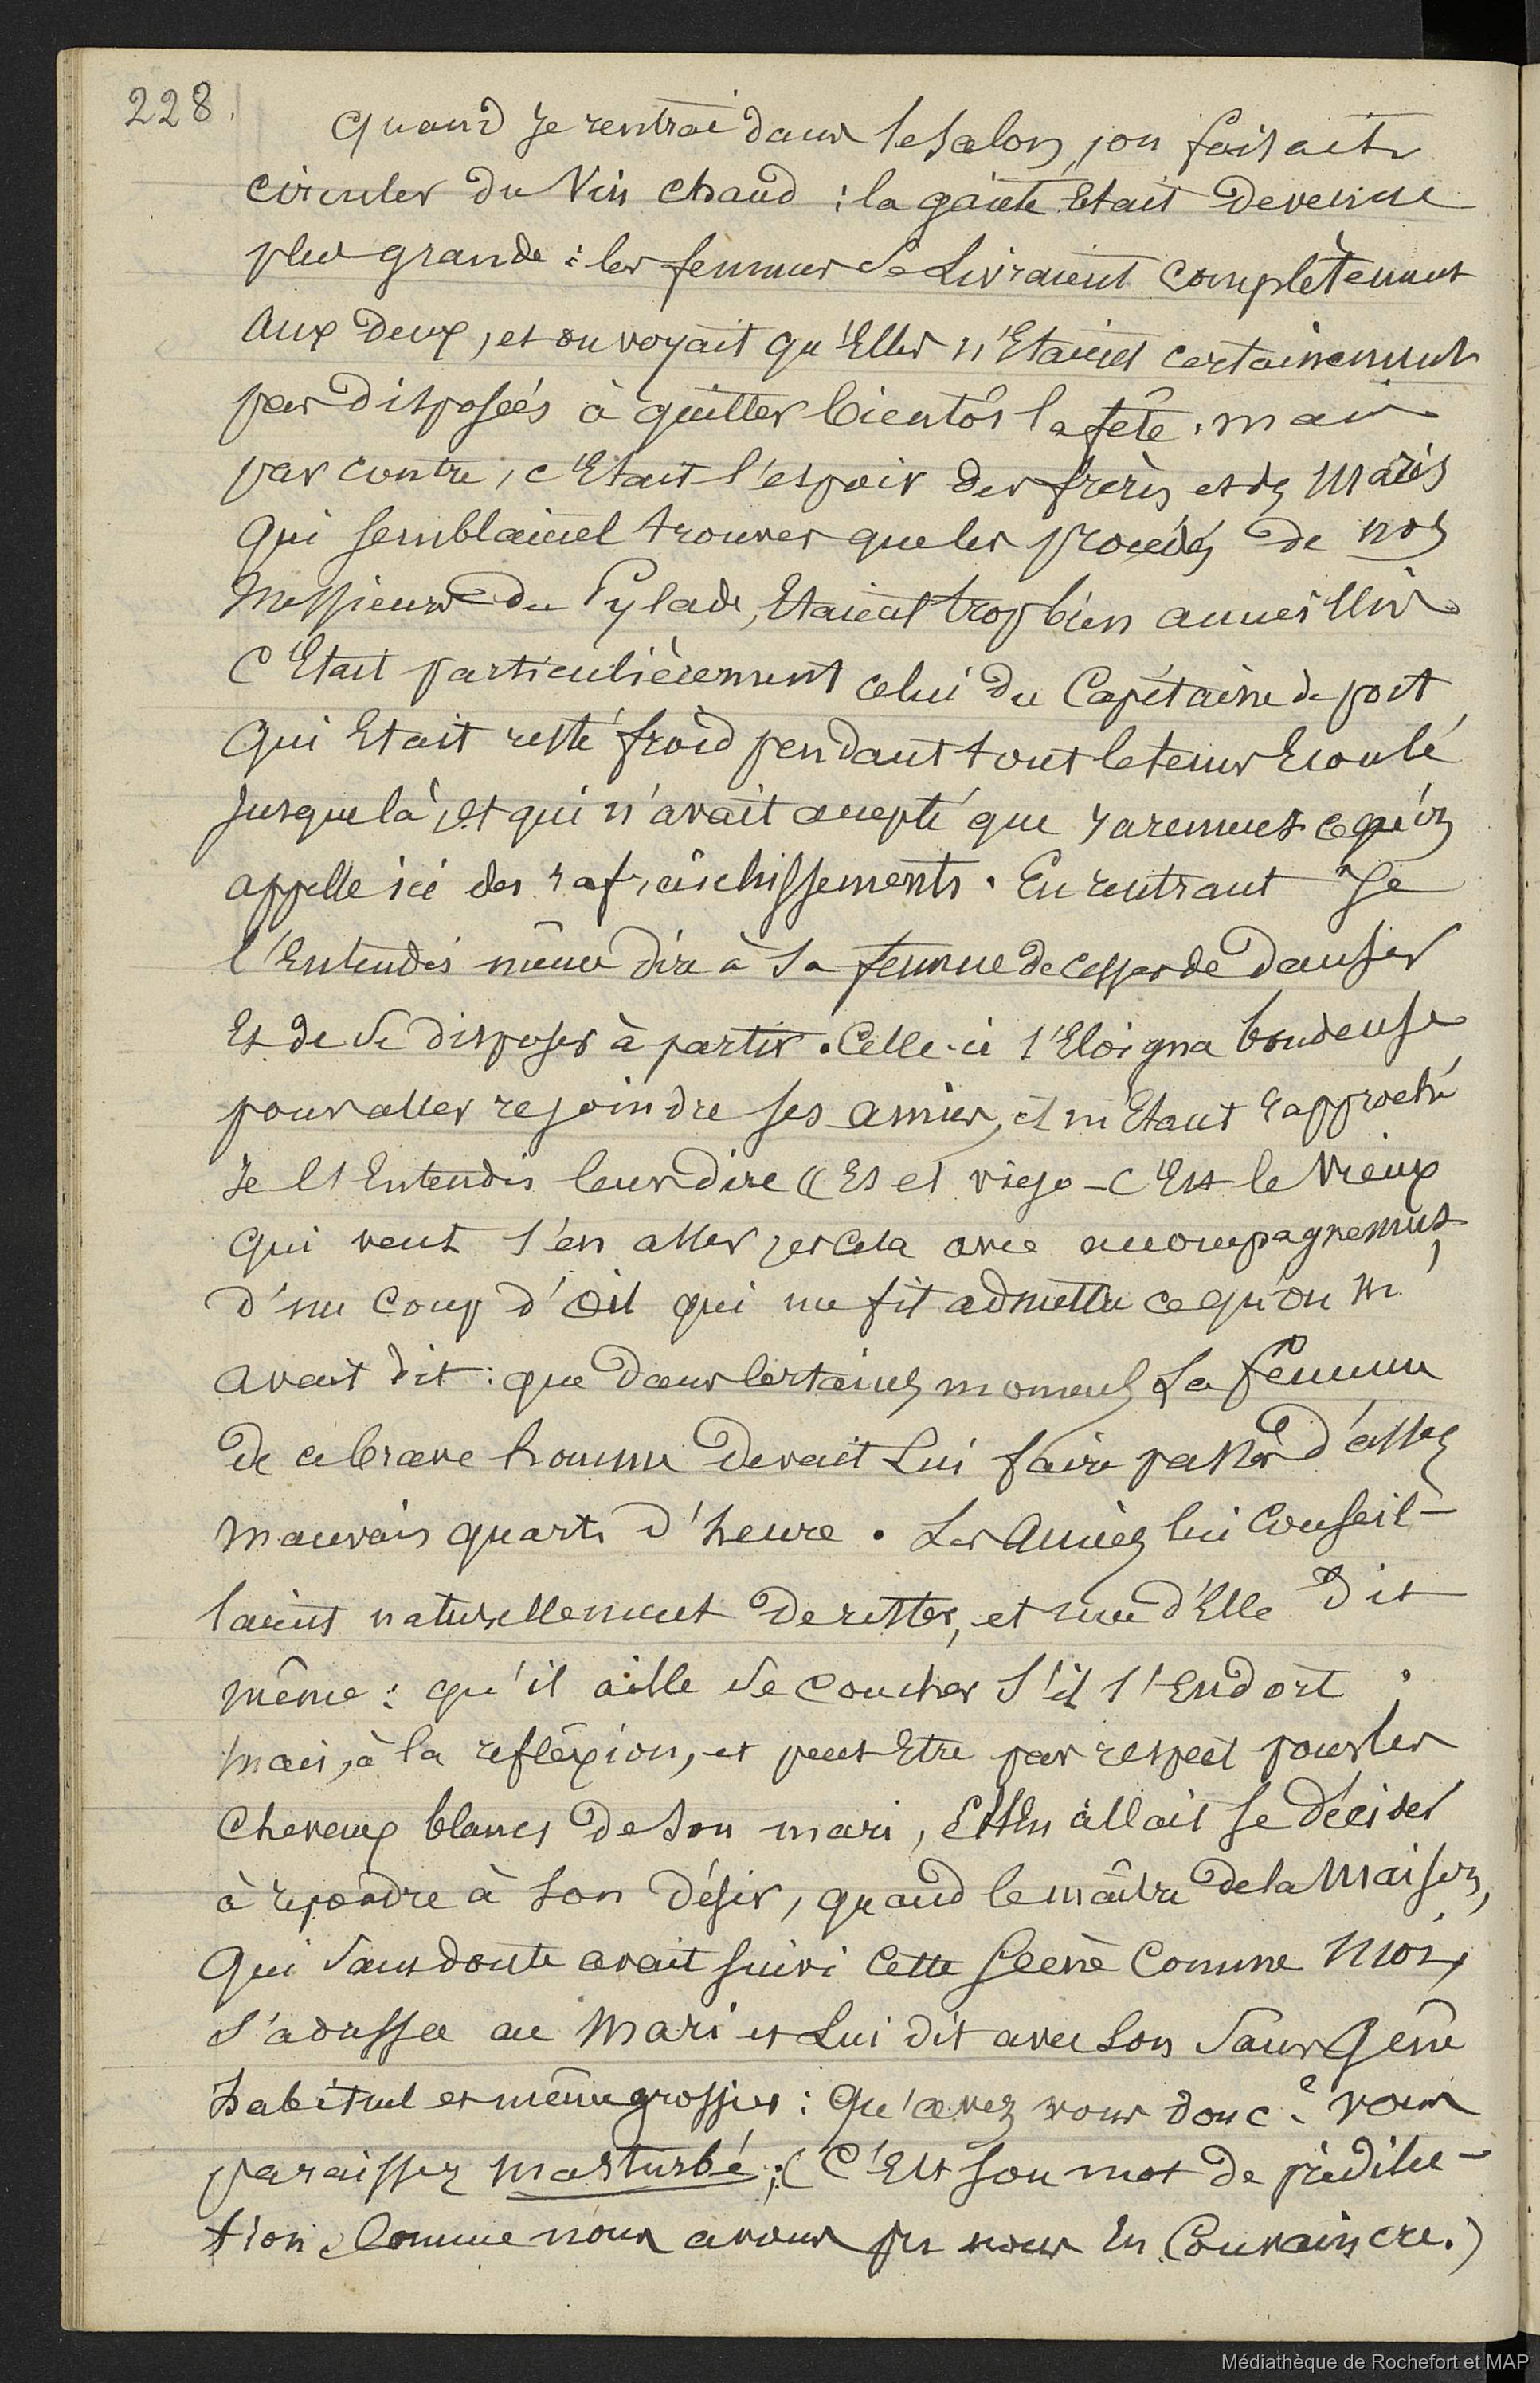 228.
Quand Je rentrai dans le Salon, on faisait
circuler du Vin chaud : la gaieté Etait Devenue
plus grande : les femmes se Livraient complètement
aux deux, et on voyait qu'Elles n'Etaient certainement
pas disposées à quitter bientôt la fête. mais
par contre, c'Etait l'espoir des frères et des Maris
qui semblaient trouver que les procédés de nos
Messieurs du Pylade, Etaient trop bien accueillis
C'Etait particulièrement celui du Capitaine de port,
qui Etait resté froid pendant tout le tems Ecoulé
jusque là, et qui n'avait accepté que rarement ce qu'on
appelle ici des rafraichissements. En rentrant Je
l'Entendis même dire à Sa femme de cesser de Danser
Et de se disposer à partir. Celle-ci s'Eloigna boudeuse
pour aller rejoindre ses amies, et m'Etant rapproché
Je l'Entendis leur dire (( Es el viejo - C'Est le Vieux
qui veut s'en aller, et cela avec accompagnement
d'un coup d'œil qui me fit admettre ce qu'on m'
avait dit : que dans certains moments La femme
de ce brave homme devait Lui faire passer d'assez
mauvais quarts d'heure. Les Amies lui Conseil-
laient naturellement De rester, et une d'Elle dit
même : qu'il aille se coucher s'il s'Endort ;
mais, à la refléxion, et peut Etre par respect pour les
cheveux blancs de Son mari, allait se décider
à repondre à Son désir, quand le maître de la Maison,
qui Sans doute avait suivi cette Scène Comme Moi,
s'adressa au Mari et Lui dit avec Son Sans Gêne
habituel et même grossier : Qu'avez vous donc ? vous
paraissez masturbé ; (C'Est son mot de prédilec-
tion, Comme nous avons pu nous En Convaincre.)
Médiathèque de Rochefort et MAP